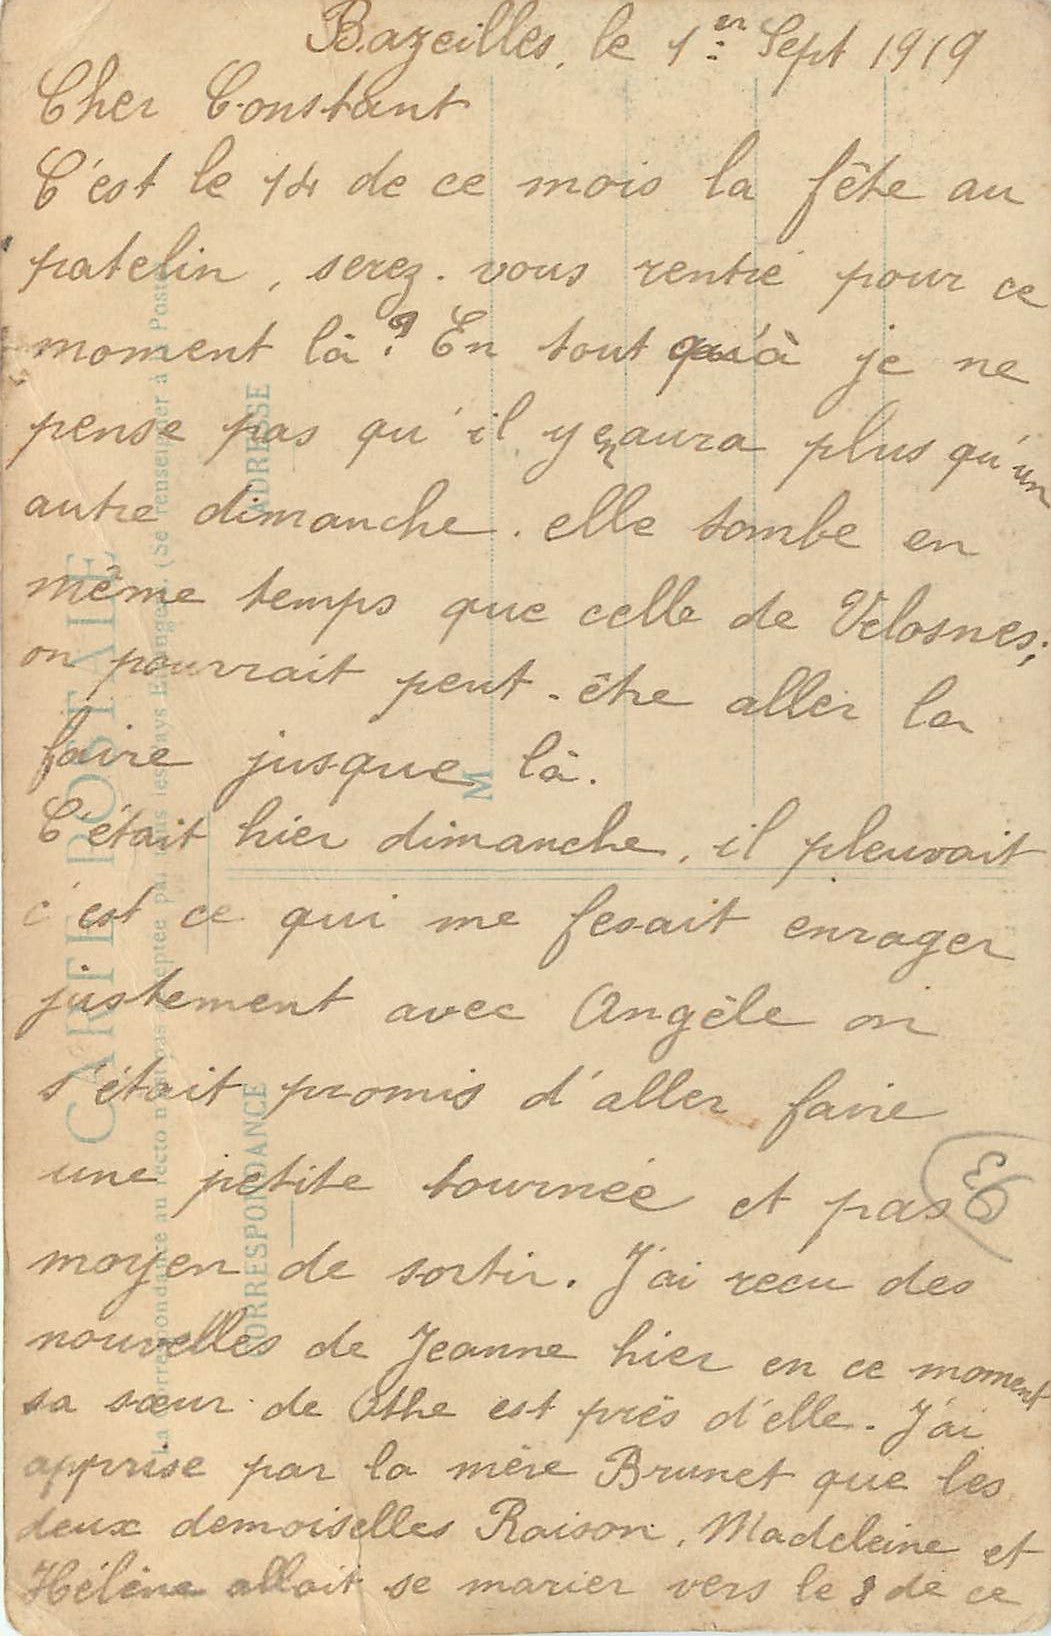 Bazeilles, le 1er Sept 1919
Cher Constant
C'est le 14 de ce mois la fête au
patelin, serez-vous rentré pour ce
moment là? En tout qu'à je ne
pense pas qu'il y en aura plus qu'un
autre dimanche. elle tombe en
même temps que celle de Velosnes;
on pourrait peut-être aller la
faire jusque là.
C'était hier dimanche, il pleuvait
c'est ce qui me fesait enrager
justement avec Angèle on
s'était promis d'aller faire
une petite tournée et pas
moyen de sortir. J'ai recu des
nouvelles de Jeanne hier en ce moment
sa sœur de Othe est près d'elle. J'ai
apprise par la mère Brunet que les
deux demoiselles Raison, Madeleine et
Hélène allait se marier vers le 8 de ce
CARTE POSTALE
La Correspondance au recto n'est pas acceptée par tous les pays Étrangers. (Se renseigner à la Poste)
CORRESPONDANCE
ADRESSE
M